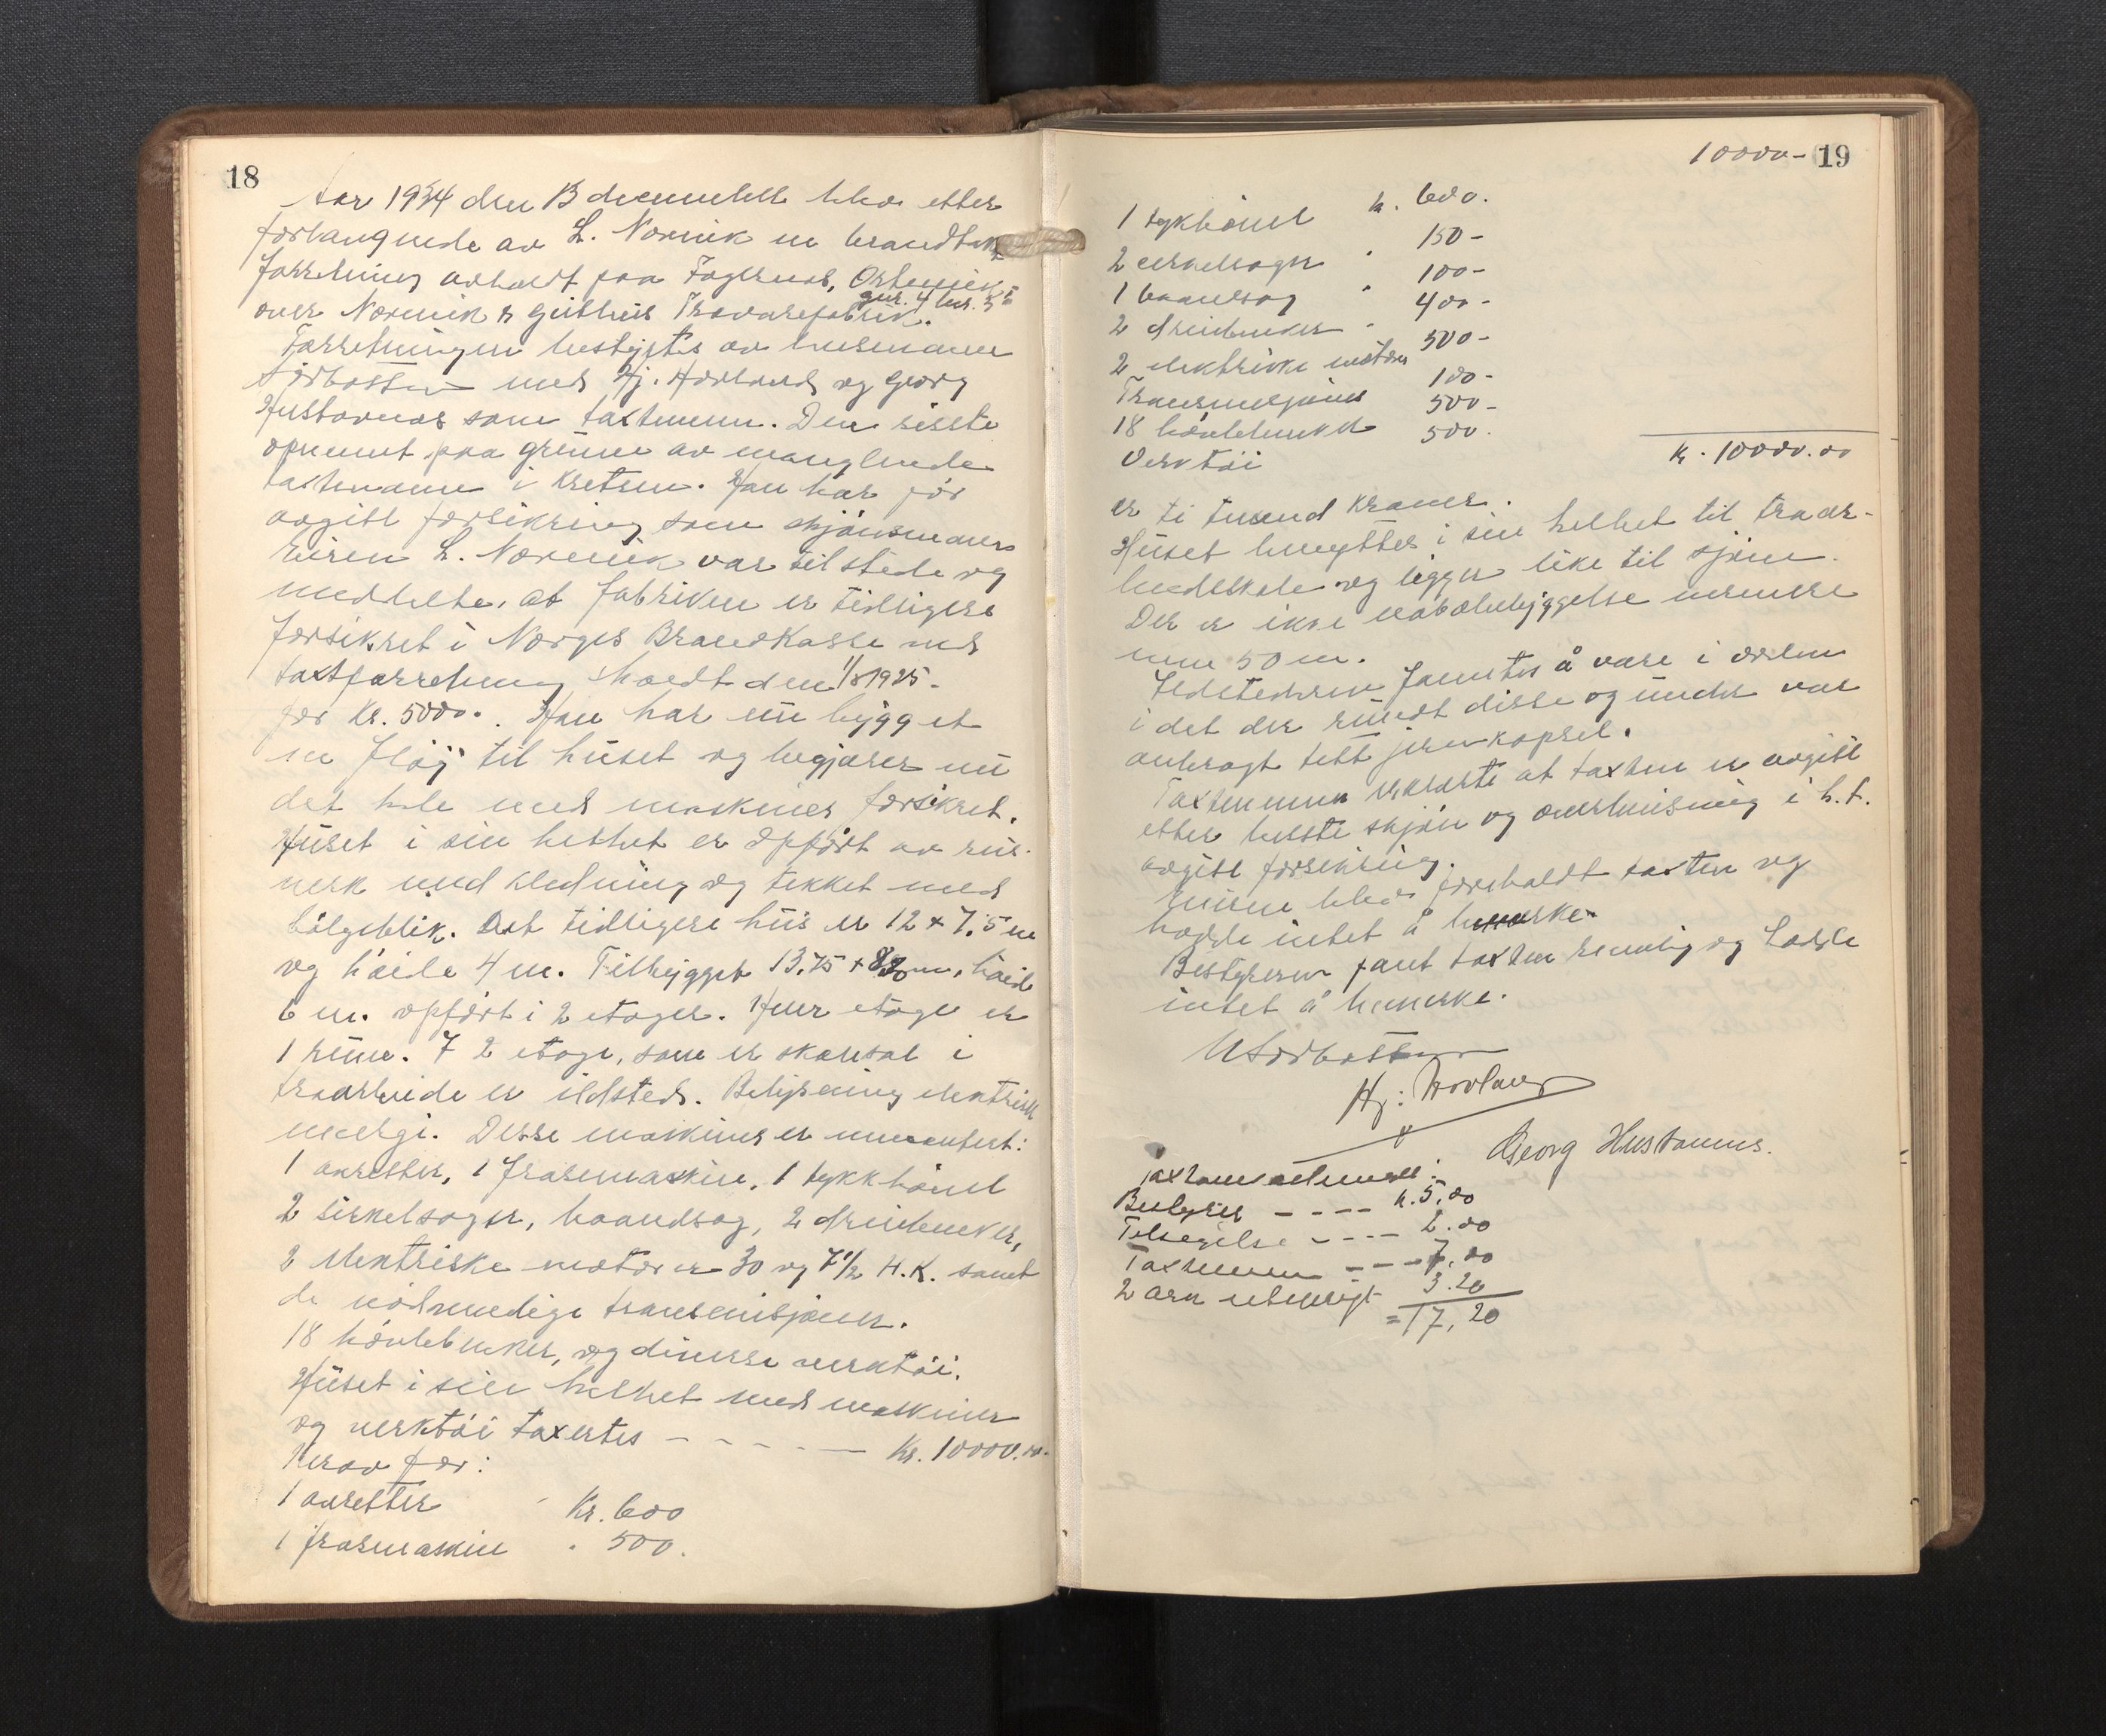 18
Aar 1934 den 13 december blev efter
forlangende av L. Norvik en brandtakst
forretning avholdt paa Fagernes, Ostervik
gnr. 4 bnr. 5
over Norvik & Trævarefabrik.
Forretningen bestyrtes av lensmann
Sørbotten med Hj. Hovland og Georg
Hustavnes som taxtmenn. Den siste
opnevnt paa grunn av manglende
taxtmann i kretsen. Han har før
avgitt forsikring som skjønsmann
Eieren L. Norvik var tilstede og
meddelte, at fabriken er tidligere
forsikret i Norges Brandkasse ved
taxtforretning holdt den 1/8 1925.
for Kr. 5000.. Han har nu bygget
en fløj til huset og begjærer nu
det hele med maskiner forsikret.
Huset i sin helhet er opført av reis-
verk med kledning og tekket med
bølgeblik. Det tidligere hus er 12 x 7,5 m
og høide 4 m. Tilbygget 13,75 + m, høide
6 m. opført i 2 etager. Hver etage er
1 rum. I 2 etage, som er skolesal i
træarbeide er ildsted. Belysning elektrisk
energi. Disse maskiner er monntert:
1 avretter, 1 fræsemaskin, 1 tykkhøvel
2 sirkelsager, baandsag, 2 dreiebenker,
2 elektriske motorer 30 og 7 1/2 H.K. samt
de nødvendige transmisjoner.
18 høvlebenker, og diverse verktøi.
Huset i sin helhet med maskiner
og verktøi taxertes - - - - - Kr. 10000.00.
Herav for:
1 avretter Kr. 600
1 fræsmaskin " 500.
10000- 19
1 tykhøvel k. 600.
2 cirkelsager " 150-
1 baandsag " 100-
2 dreiebenker " 400-
2 elektriske motorer 500-
Transmisjoner 100-
18 høvlebenker 500-
Verktøi 500.
Kr. 10000.00
er ti tusend kroner.
Huset benyttes i sin helhet til træar-
beidskole og ligger like til sjøen.
Der er ikke nabobebyggelse nermere
enn 50 m.
Ildstederne fantes å være i orden
i det der rundt disse og under var
anbragt tett jernkapsel.
Taxtmennen erklærte at taxten er avgitt
etter beste skjøn og overbevisning i h.t.
avgitt forsikring.
Eieren blev foreholdt taxten og
hadde intet å bemerke.
Bestyreren fant taxten rimelig og hadde
intet å bemerke.
Sørbotten
Hj: Hovland
Georg Hustavnes.
Bestyrer - - - - k. 5.00
Tilsigelse - - - - 2.00
Taxtmenn - - - 7.00
2 ark utskrift 3.20
= 17,20